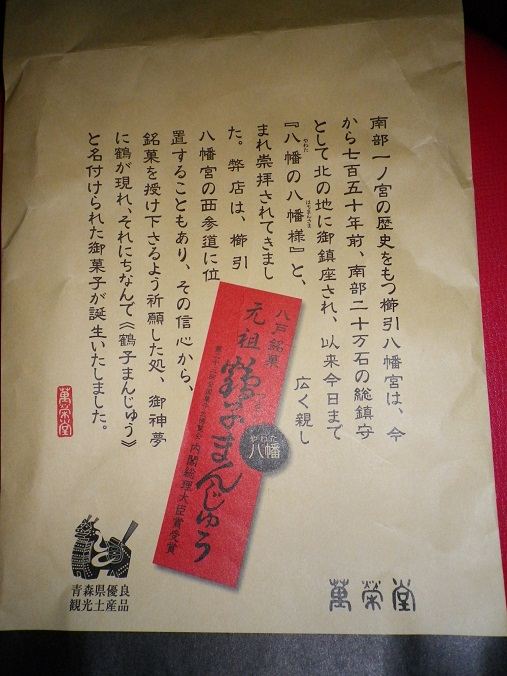 南部一ノ宮の歴史をもつ櫛引八幡宮は、今
から七百五十年前、南部二十万石の総鎮守
として北の地に御鎮座され、以来今日まで
『八幡の八幡様』と、広く親し
やわた
はちまんさま
まれ崇拝されてきまし
た。弊店は、櫛引
八幡宮の西参道に位
置することもあり、その信心から、
銘菓を授け下さるよう祈願した処、御神夢
に鶴が現れ、それにちなんで《鶴子まんじゅう》
と名付けられた御菓子が誕生いたしました。
萬榮堂
八戸銘菓
元祖
鶴子まんじゅう
やわた
八幡
内閣総理大臣賞受賞
青森県優良
観光土産品
萬榮堂